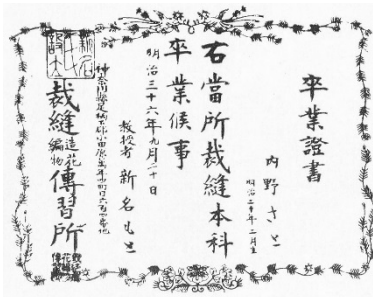 卒業證書
内野さと
明治二十年二月生
右當所裁縫本科
卒業候事
明治三十六年九月二十日
教授者 新名もと
神奈川縣足柄下郡小田原
裁縫造花編物傳習所